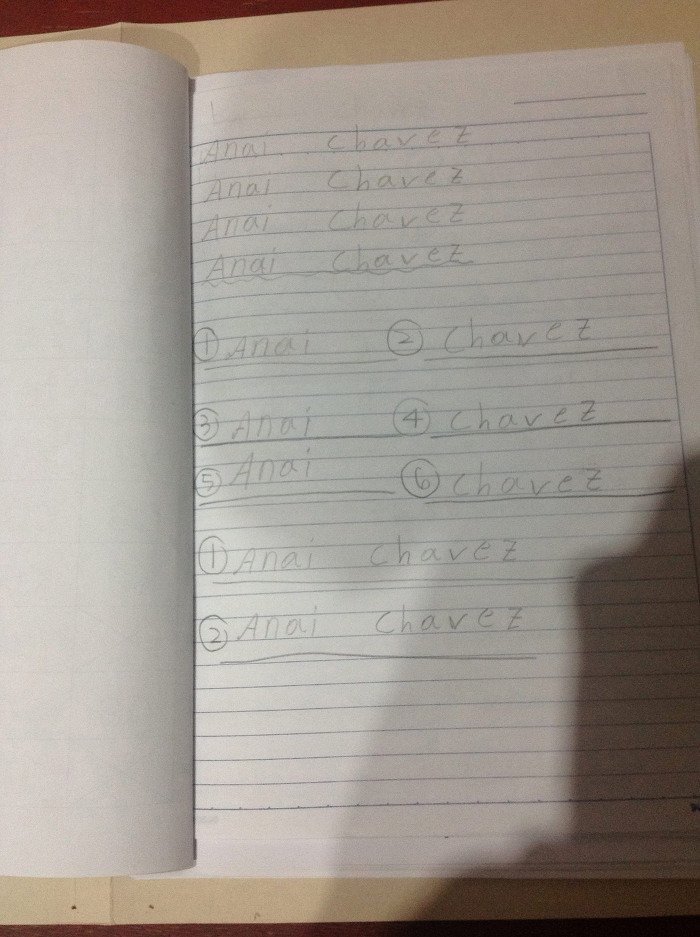 Anai Chavez
Anai Chavez
Anai Chavez
Anai Chavez
① Anai ② Chavez
③ Anai ④ Chavez
⑤ Anai ⑥ Chavez
① Anai Chavez
② Anai Chavez